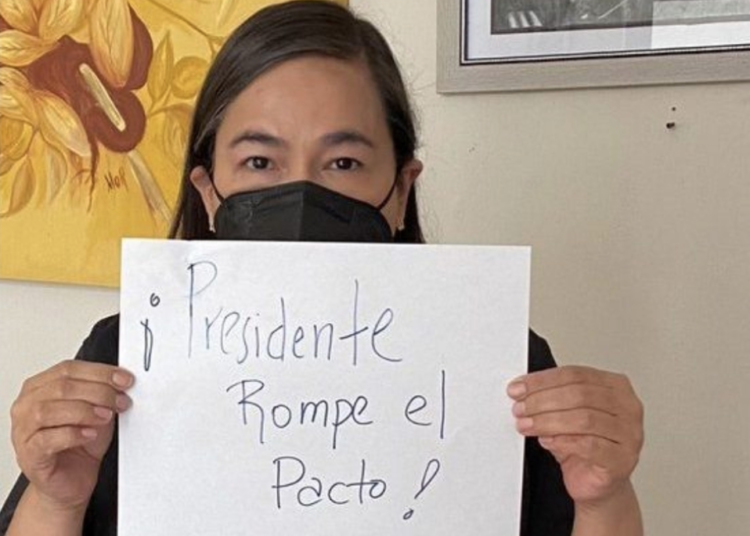 ¡Presidente
Rompe el
Pacto!